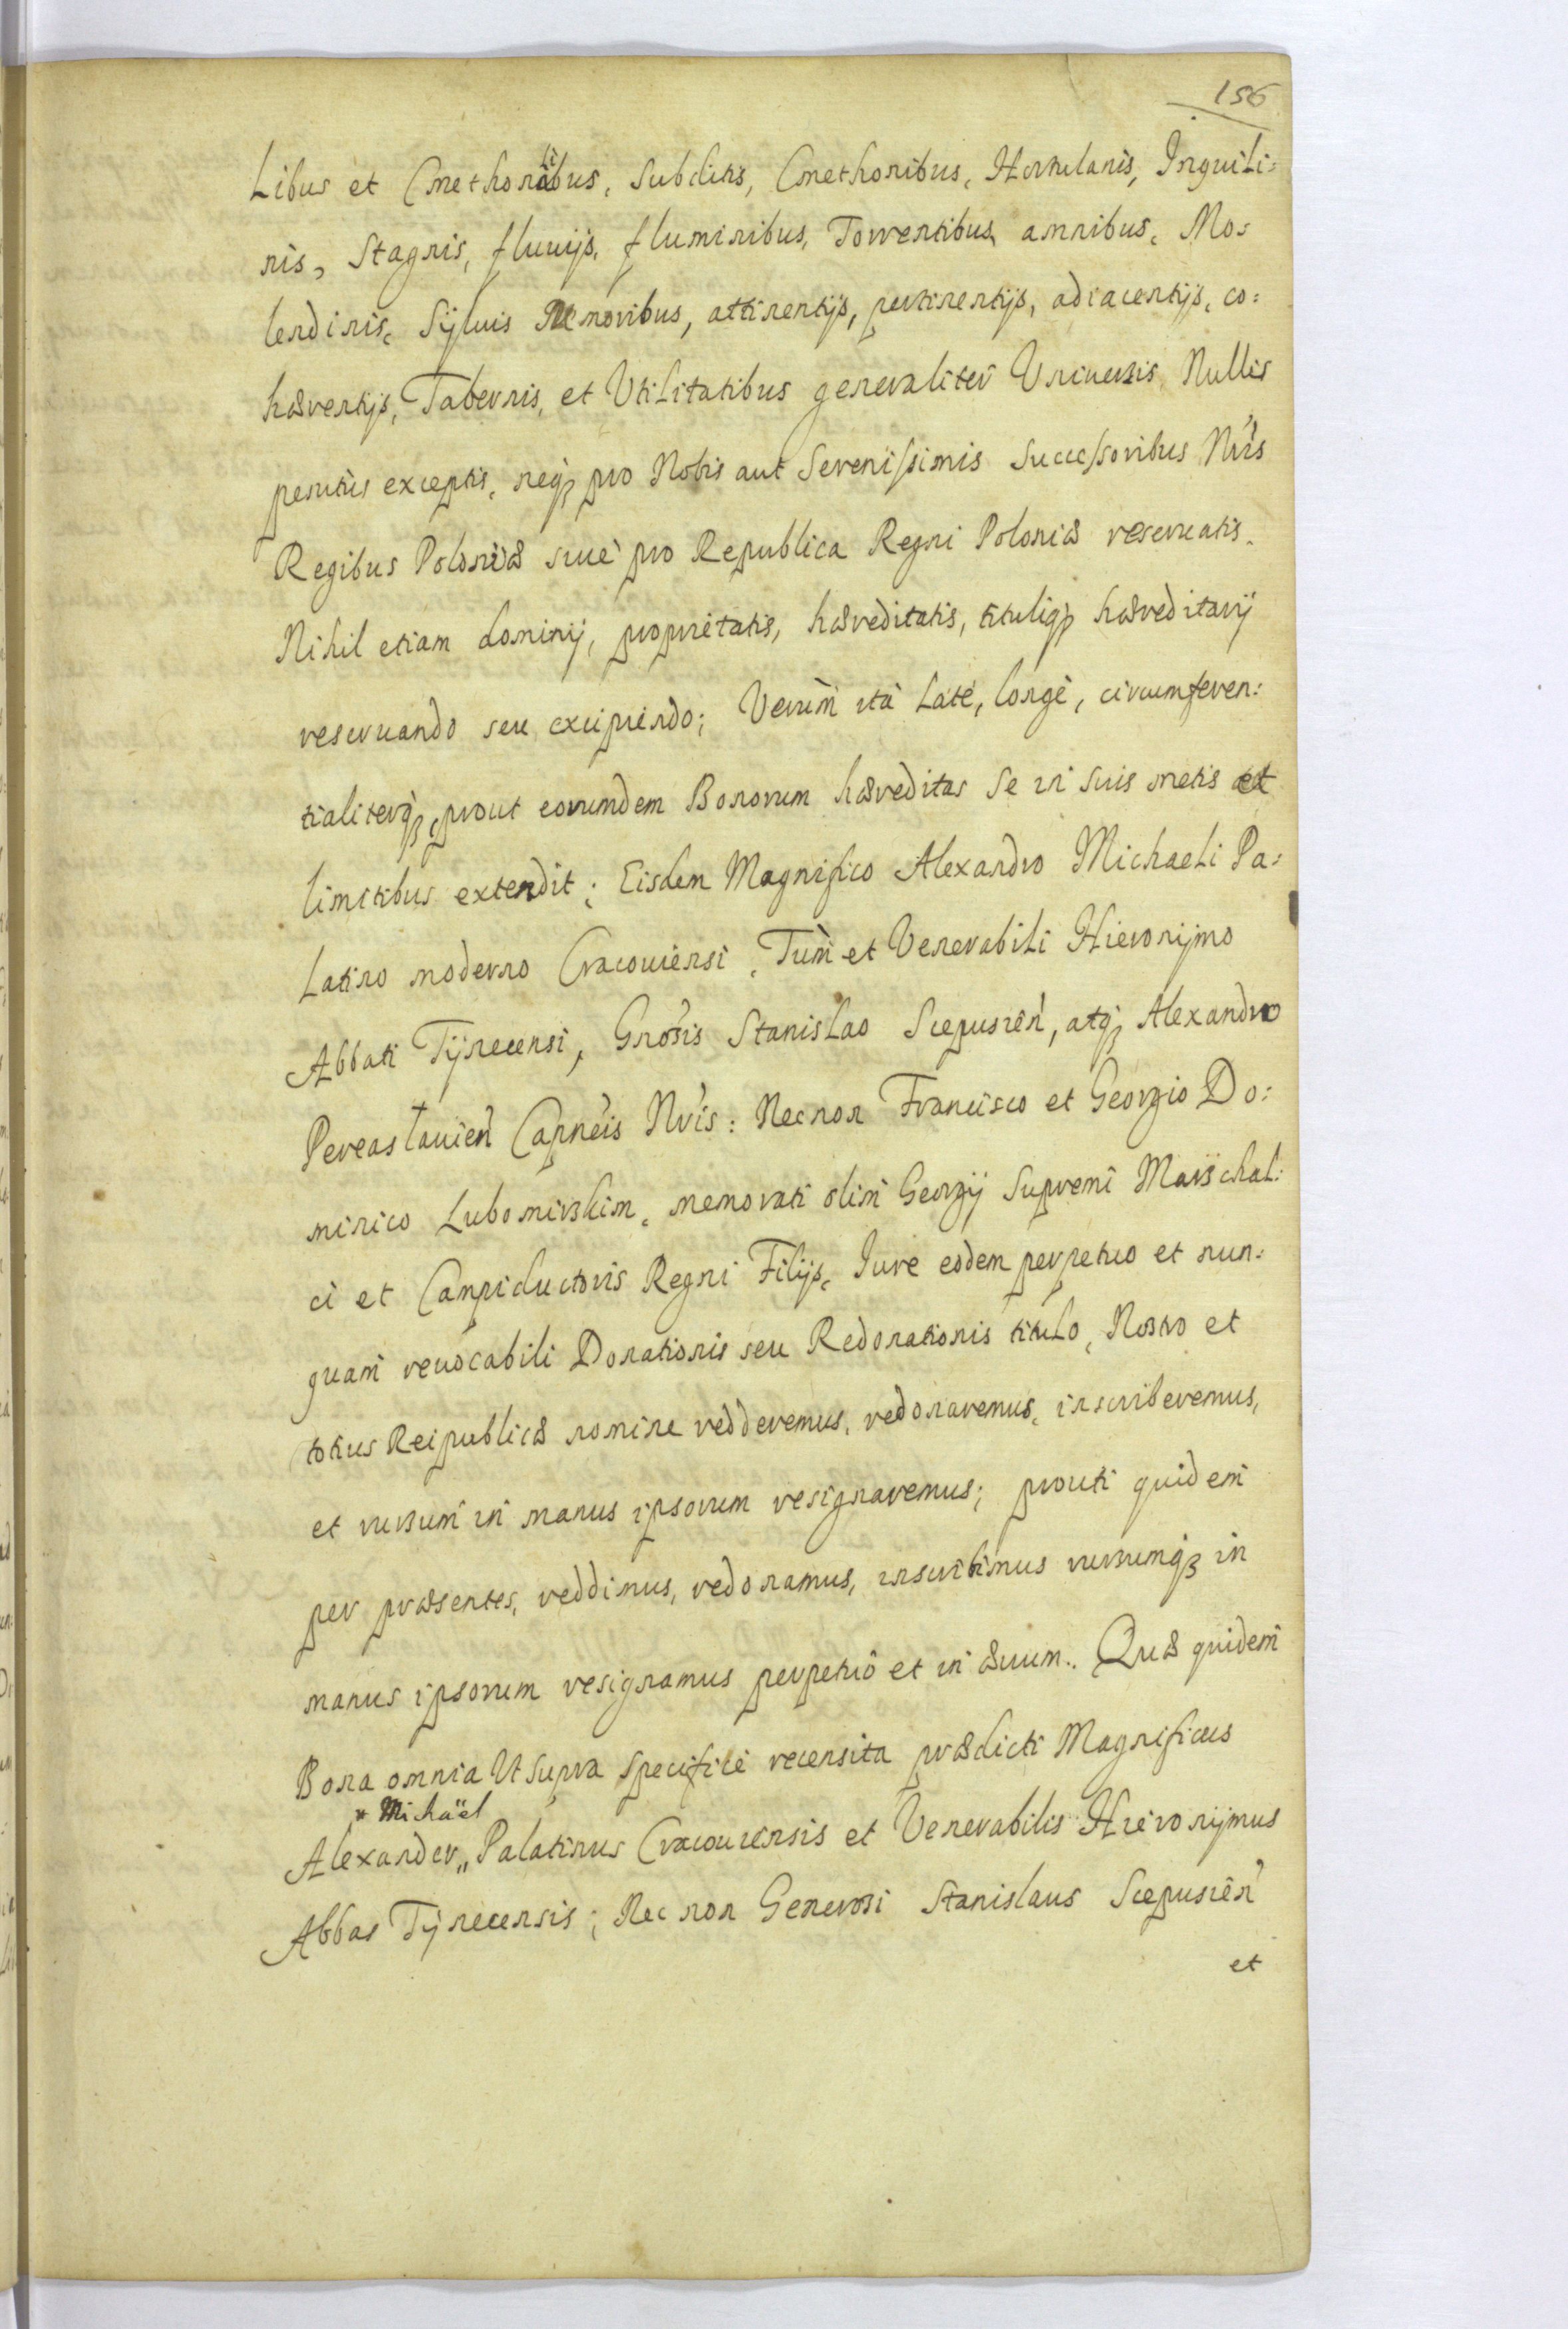 156
libus et Cmethonalibus, Subditis, Cmethonibus, Hortulanis, Inquili:
nis, Stagnis, fluuijs, fluminibus, Torrentibus, amnibus, Mo:
lendinis, Syluis Nemoribus, attinentijs, pertinentijs, adiacentijs, co:
hærentijs, Tabernis, et Vtilitatibus generaliter Vniuersis Nullis
penitùs exceptis, neqꝫ pro Nobis aut Serenissimis Successoribus Nris
Regibus Poloniæ siuè pro Republica Regni Poloniæ reseruatis.
Nihil etiam dominij, proprietatis, hæreditatis, tituliqꝫ hæreditarij
reseruando seu excipiendo; Verùm ità latè, longè, circumferen:
tialiterqꝫ, prout eorumdem Bonorum hæreditas se in suis metis et
limitibus extendit; Eisdem Magnifico Alexandro Michaeli Pa:
latino moderno Cracouiensi, Tùm et Venerabili Hieronymo
Abbati Tynecensi, Gnosis Stanislao Scepusien, atqꝫ Alexandro
Pereaslauien Capneis Nris: Necnon Francisco et Georgio Do:
minico Lubomirskim, memorati olim Georgij Supremi Marschal:
ci et Campiductoris Regni Filijs, Iure eodem perpetuo et nun:
quam reuocabili Donationis seu Redonationis titulo, Nostro et
totius Reipublicæ nomine redderemus, redonaremus, inscriberemus,
et rursum in manus ipsorum resignaremus; prouti quidem
per præsentes, reddimus, redonamus, inscribimus rursumqꝫ in
manus ipsorum resignamus perpetuò et in æuum. Quæ quidem
Bona omnia Vt supra specificè recensita prædicti Magnificus
* Michaël
Alexander„ Palatinus Cracouiensis et Venerabilis Hieronymus
Abbas Tynecensis; Nec non Generosi Stanislaus Scepusien
et